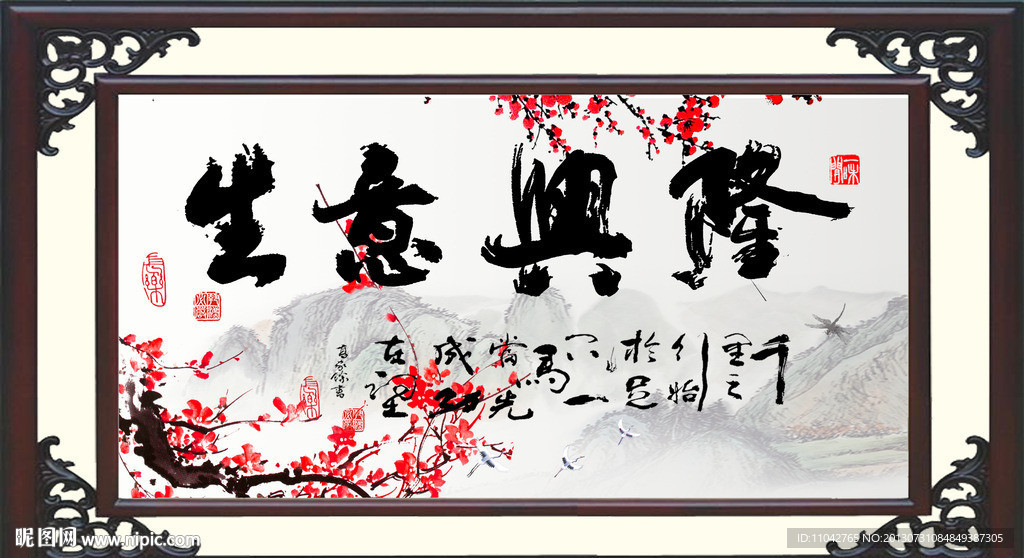 生意興隆
千
里之
行始
於足
下一
馬
當先
成功
在望
長樂
長樂
昵图网 www.nipic.com
ID:11042765 NO:20130731084849387305